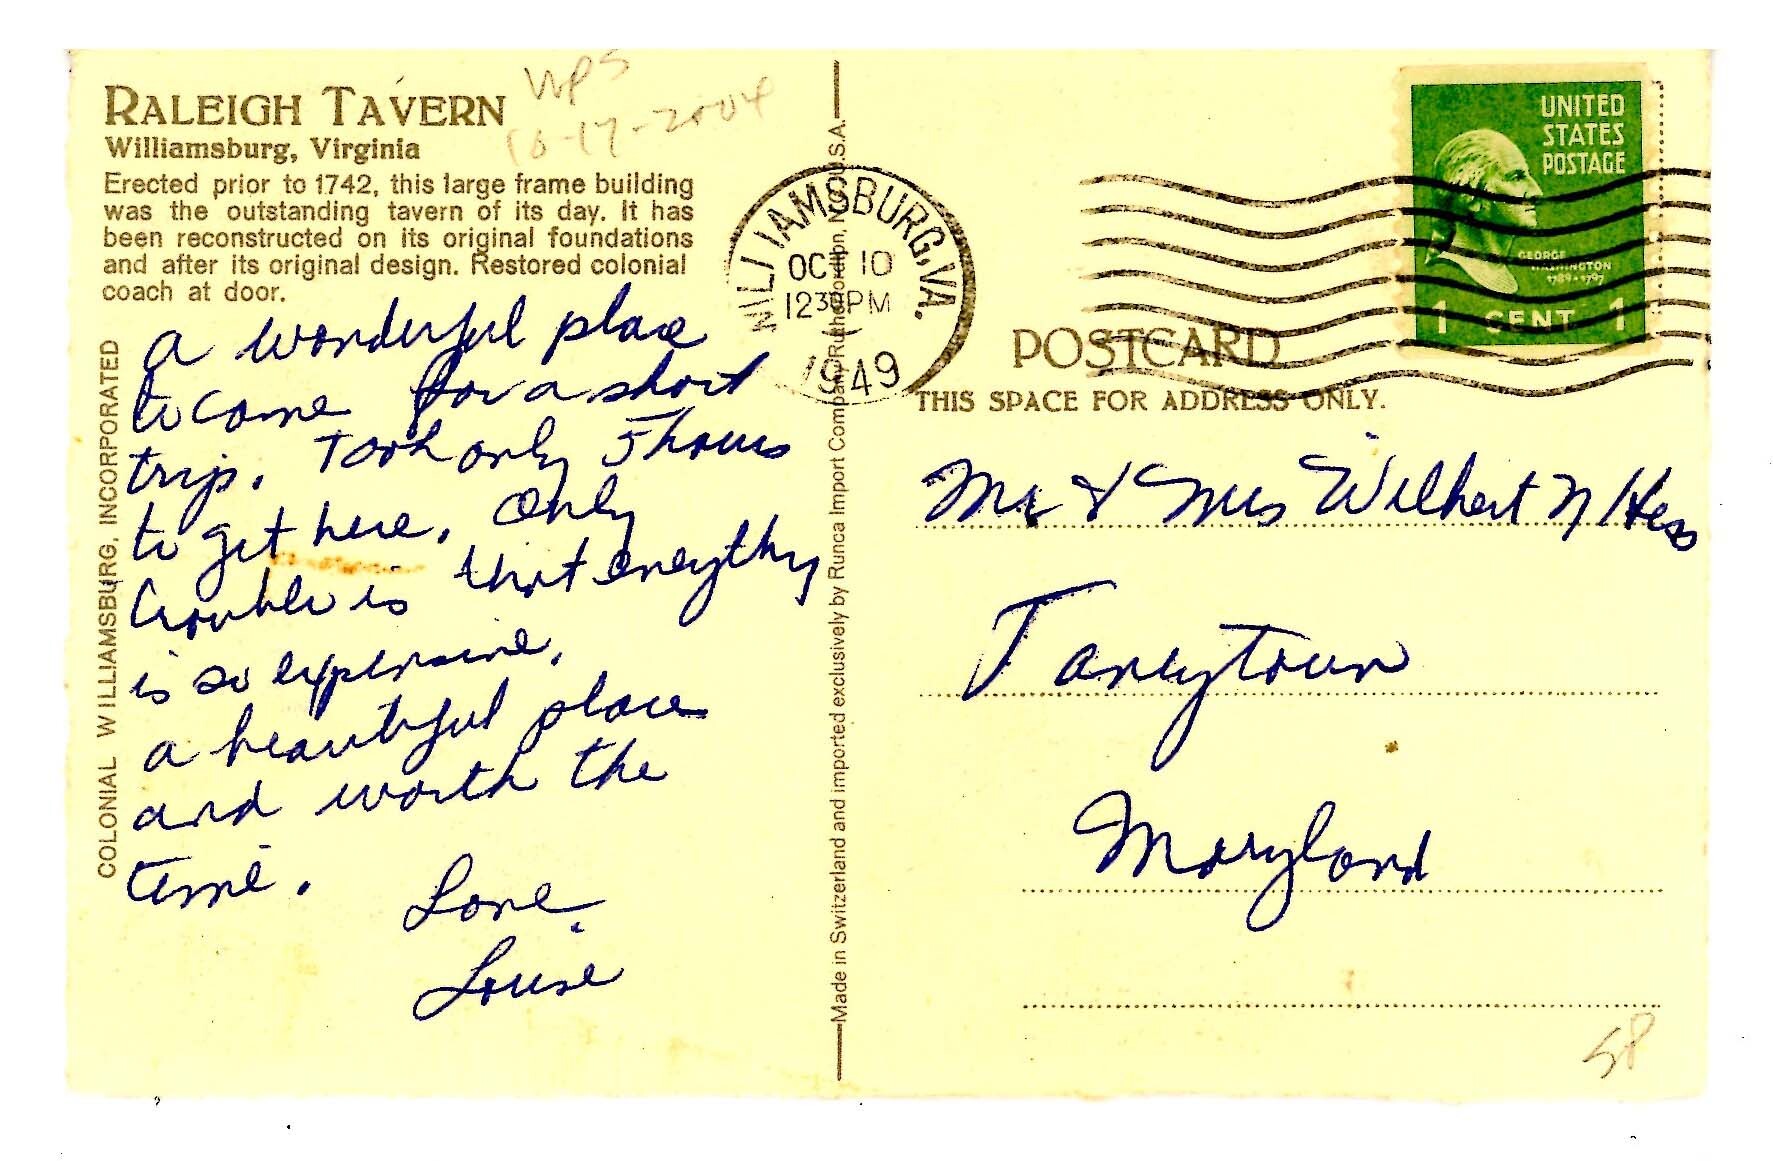 RALEIGH TAVERN
Williamsburg, Virginia
Erected prior to 1742, this large frame building
was the outstanding tavern of its day. It has
been reconstructed on its original foundations
and after its original design. Restored colonial
coach at door.
WPS
10-17-2004
COLONIAL WILLIAMSBURG, INCORPORATED
a wonderful place
to come for a short
trip. Took only 5 hours
to get here. Only
trouble is that everything
is so expensive.
a beautiful place
and worth the
time.
Love
Louise
Made in Switzerland and imported exclusively by Runca Import Company, U.S.A.
WILLIAMSBURG, VA.
OCT 10
1230 PM
1949
UNITED
STATES
POSTAGE
GEORGE
WASHINGTON
1789-1797
1 CENT 1
POSTCARD
THIS SPACE FOR ADDRESS ONLY.
Mr & Mrs Wilbert N Hess
Taneytown
Maryland
58